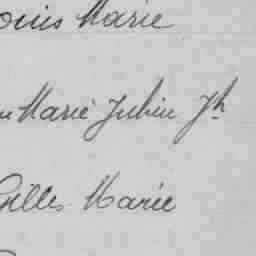 ouis Marie
Marie Julien Jh
Gilles Marie